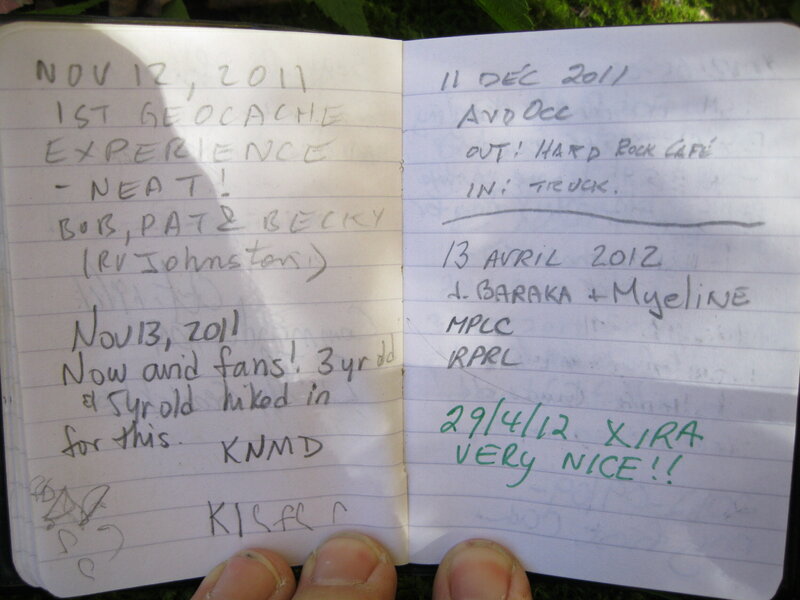 NOV 12, 2011
1ST GEOCACHE
EXPERIENCE
- NEAT!
BOB, PAT & BECKY
(RV Johnston)
Nov 13, 2011
Now avid fans! 3 yr old
& 5yr old hiked in
for this.
KNMD
11 DEC 2011
OUT: HARD ROCK CAFÉ
IN: TRUCK.
13 AVRIL 2012
BARAKA + Myeline
MPLC
RPRL
29/4/12. XIRA
VERY NICE!!